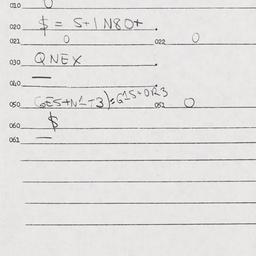 010 0
020 $ = S+1N80+.
021 0 022 0
030 QNEX
040 —
050 (GES+N1-3)=G1S=0R3 051 0
060 $
061 —